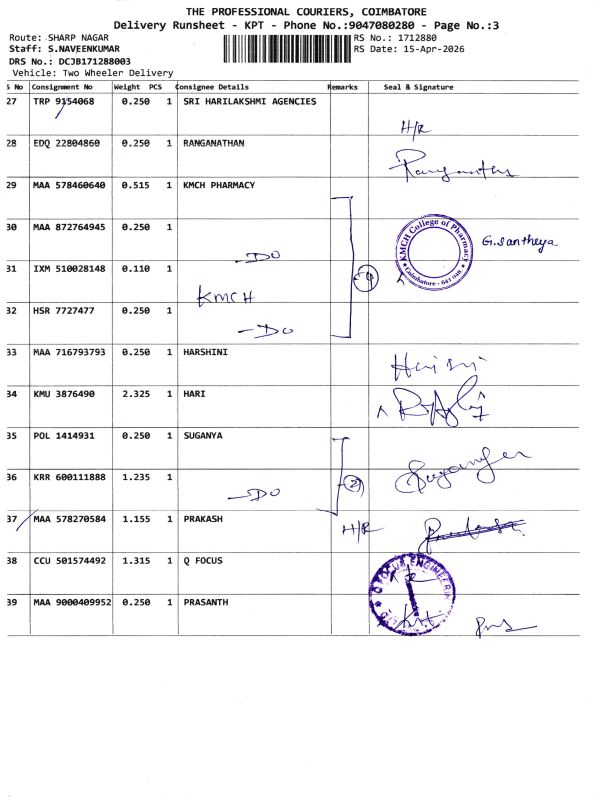 THE PROFESSIONAL COURIERS, COIMBATORE
Delivery Runsheet - KPT - Phone No.:9047080280 - Page No.:3
Route: SHARP NAGAR RS No.: 1712880
Staff: S.NAVEENKUMAR RS Date: 15-Apr-2026
DRS No.: DCJB171288003
Vehicle: Two Wheeler Delivery
S No Consignment No Weight PCS Consignee Details Remarks Seal & Signature
27 TRP 9154068 0.250 1 SRI HARILAKSHMI AGENCIES
H/R
28 EDQ 22804860 0.250 1 RANGANATHAN
29 MAA 578460640 0.515 1 KMCH PHARMACY
30 MAA 872764945 0.250 1
KMCH College of Pharmacy
Coimbatore - 641 048.
G. Santheya
- DO
31 IXM 510028148 0.110 1
4
KMCH
32 HSR 7727477 0.250 1
- DO
33 MAA 716793793 0.250 1 HARSHINI
34 KMU 3876490 2.325 1 HARI
35 POL 1414931 0.250 1 SUGANYA
36 KRR 600111888 1.235 1
- DO
2
37 MAA 578270584 1.155 1 PRAKASH
H/R
38 CCU 501574492 1.315 1 Q FOCUS
39 MAA 9000409952 0.250 1 PRASANTH